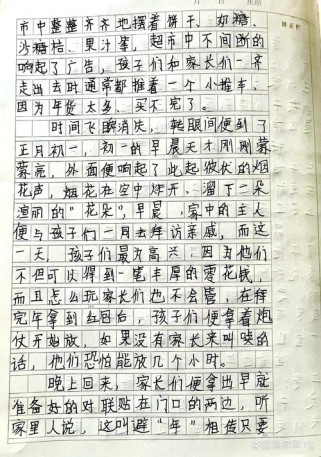 月 日 星期
市中整整齐齐地摆着饼干、奶糖、
沙糖桔、果汁等，超市中不间断的
响起了广告，孩子们和家长们一齐
走出去时通常都推着一个小推车、
因为年货太多、买不完了。
时间飞瞬消失，转眼间便到了
正月初一，初一的早晨天才刚刚蒙
蒙亮，外面便响起了此起彼伏的烟
花声，烟花在空中炸开、溜下一朵
渲丽的“花朵”，早晨，家中的主人
便与孩子们一同去拜访亲戚，而这
一天，孩子们最为高兴，因为他们
不但可以得到一笔丰厚的零花钱，
而且怎么玩家长们也不会管，在拜
完年拿到红包后，孩子们便拿着烟
仗开始放，如果没有家长来叫唤的
话，他们恐怕能放几个小时。
晚上回来，家长们便拿出早就
准备好的对联贴在门口的两边，听
家里人说，这叫避“年”相传只要